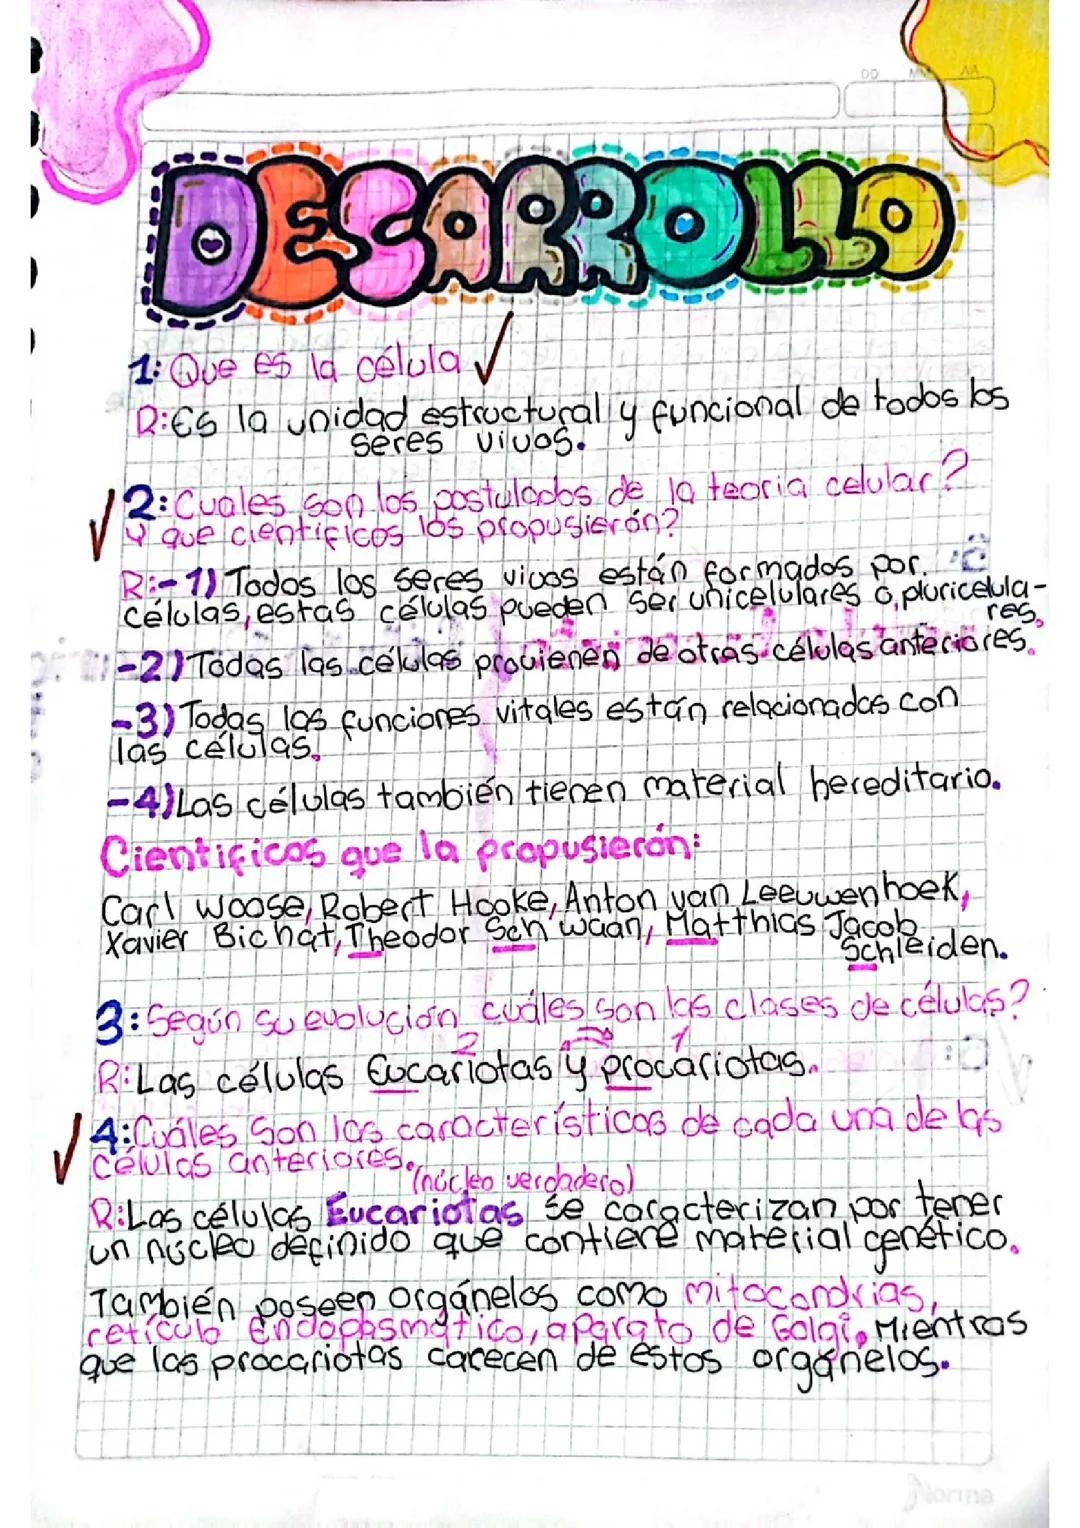 DD MM AA
DESARROLLO
1: Que es la célula ✓
R: Es la unidad estructural y funcional de todos los
seres vivos.
✓ 2: Cuales son los postulados de la teoria celular?
y que cientificos los propusierón?
R:-1) Todos los seres vivos están formados por
células, estas células pueden ser unicelulares o pluricelula-
res.
-2) Todas las células provienen de otras células anteriores.
-3) Todas las funciones vitales están relacionadas con
las células.
-4) Las células también tienen material hereditario.
Cientificos que la propusierón:
Carl Woose, Robert Hooke, Anton van Leeuwenhoek,
Xavier Bichat, Theodor Schwaan, Matthias Jacob
Schleiden.
3: Según su evolución cuáles son las clases de células?
2 1
R: Las células Eucariotas y procariotas.
✓ 4: Cuáles son las características de cada una de las
células anteriores.
(núcleo verdadero)
R: Las células Eucariotas se caracterizan por tener
un núcleo definido que contiene material genético.
También poseen orgánelos como mitocondrias,
retículo Endoplasmático, aparato de Golgi, Mientras
que las procariotas carecen de estos orgánelos.
Norma